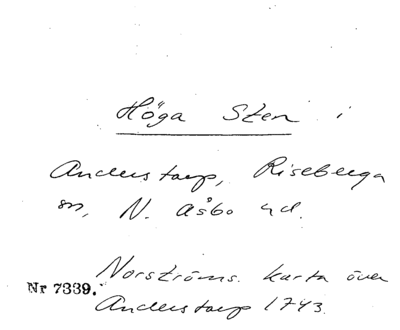 Höga Sten i
Anderstorp, Riseberga
sn, N. Åsbo hd.
Norströms karta över
Nr 7339.
Anderstorp 1743.